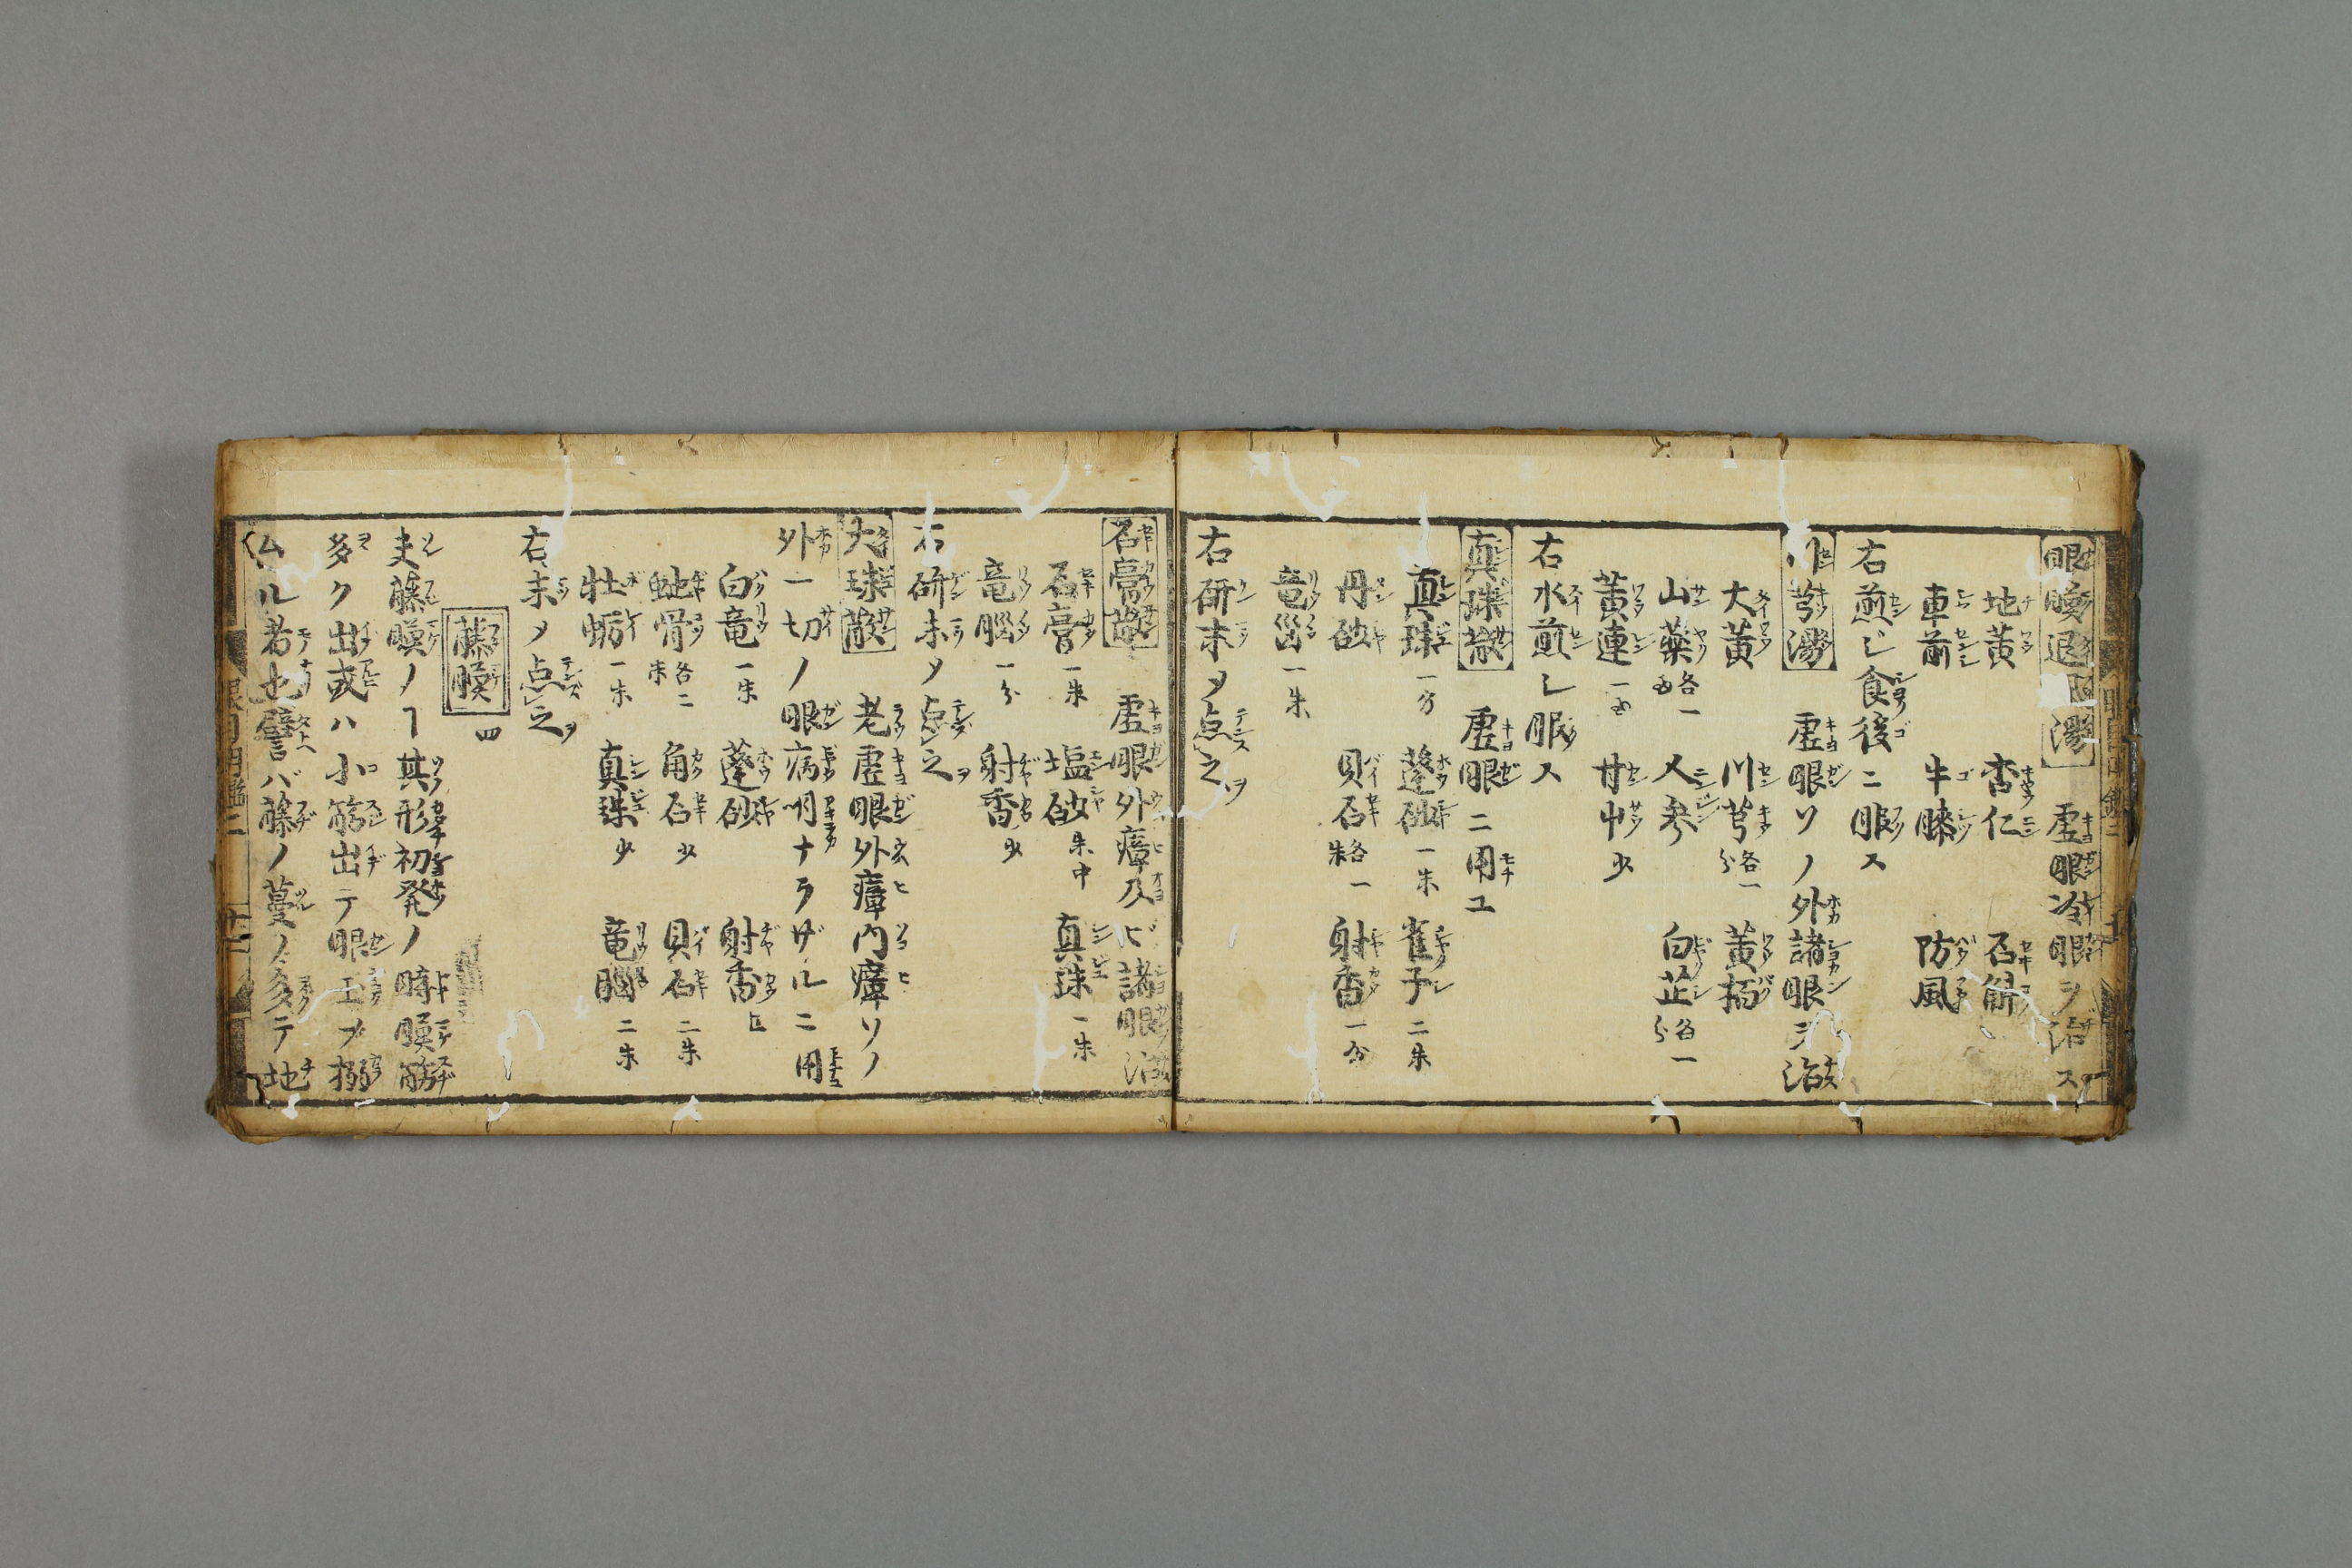 虚眼冷眼ヲ治ス
地黄 杏仁 石斛
車前 牛膝 防風
右煎ジ食後ニ服ス
川芎湯 虚眼ソノ外諸眼ヲ治ス
大黄 川芎各一分 黄栢
山薬各一 人参 白芷各一分
黄連 甘艸少
右水煎シ服ス
真珠散 虚眼ニ用ユ
真珠一分 蓬砂一朱 雀子二朱
丹砂 貝石各一朱 射香一分
竜脳一朱
右研末メ点之ヲ
石膏散 虚眼外瘴及ビ諸眼治
石膏一朱 塩砂朱中 真珠一朱
竜脳一分 射香少
右研末メ点之ヲ
大球散 老虚眼外瘴内瘴ソノ
外一切ノ眼病明ナラザルニ用
白竜一朱 蓬砂 射香
蚫骨各二朱 角石少 貝石二朱
牡蛎一朱 真珠少 竜脳二朱
右末メ点之ヲ
藤膜 四
夫藤膜ノヿ其形初発ノ時膜筋
多ク出或ハ小筋出テ眼
ムル者也譬バ藤ノ蔓ノ多テ地